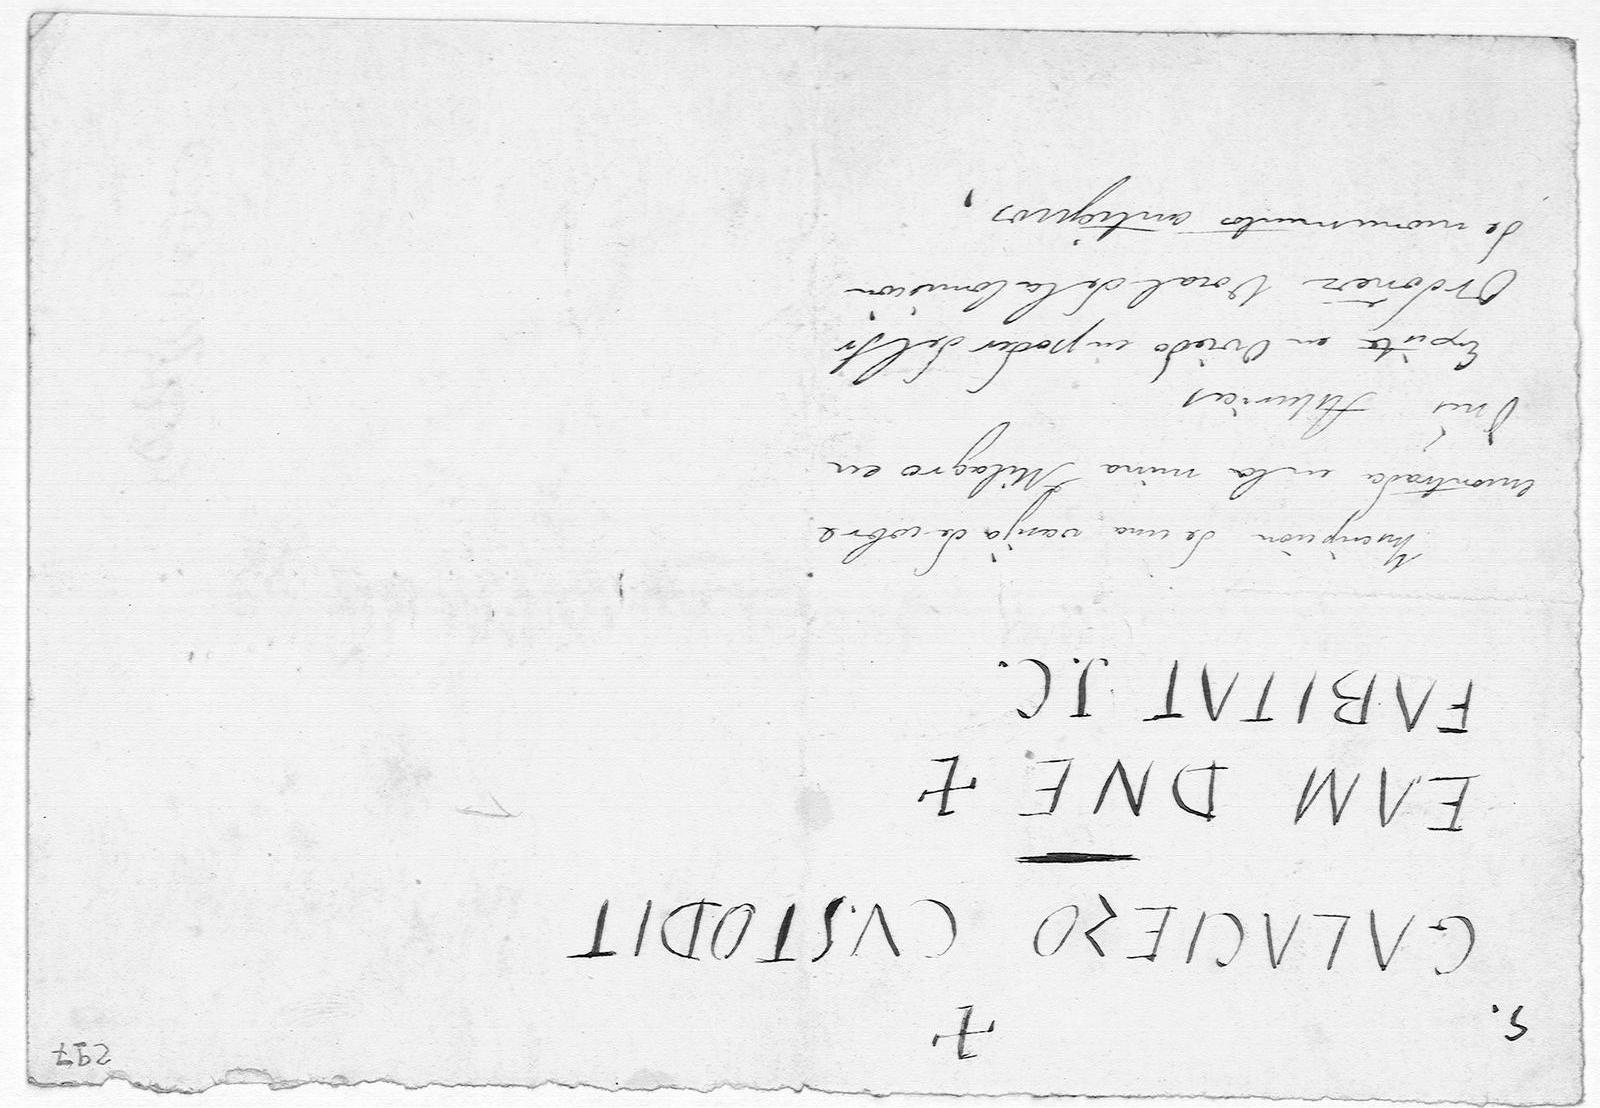 297
S.
+
GALACIERO CVSTODIT
EAM DNE +
FABITAT J.C.
Inscripcion de una vasija de cobre
encontrada en la mina Milagro en
Onís Asturias
Expte en Oviedo en poder del Sr
Ordoñez Vocal de la Comisión
de monumentos antiguos,